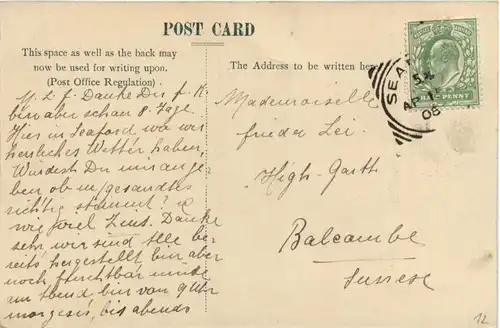 POST CARD
This space as well as the back may
now be used for writing upon.
(Post Office Regulation)
The Address to be written here
M. L. f. Danke Dir f. K.
bin aber schon 8 Tage
Hier in Seaford wo wir
herrliches Wetter haben,
Würdest Du mir ange-
ben ob m/gesandtes
richtig stimmt? u
wie Zins. Danke
sehr wir sind alle be-
reits hergestellt bin aber
noch furchtbar müde
am Abend bin von 9 Uhr
morgens, bis abends
Mademoiselle
Frieda Lei
High-Garth
Balcombe
Sussex
SEAF
AP 15
08
HALFPENNY
12